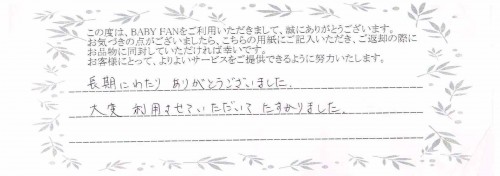 この度は、BABY FANをご利用いただきまして、誠にありがとうございます。
お気づきの点がございましたら、こちらの用紙にご記入いただき、ご返却の際に
お品物に同封していただければ幸いです。
お客様にとって、よりよいサービスをご提供できるように努力いたします。
長期にわたり ありがとうございました。
大変 利用させていただいて たすかりました。